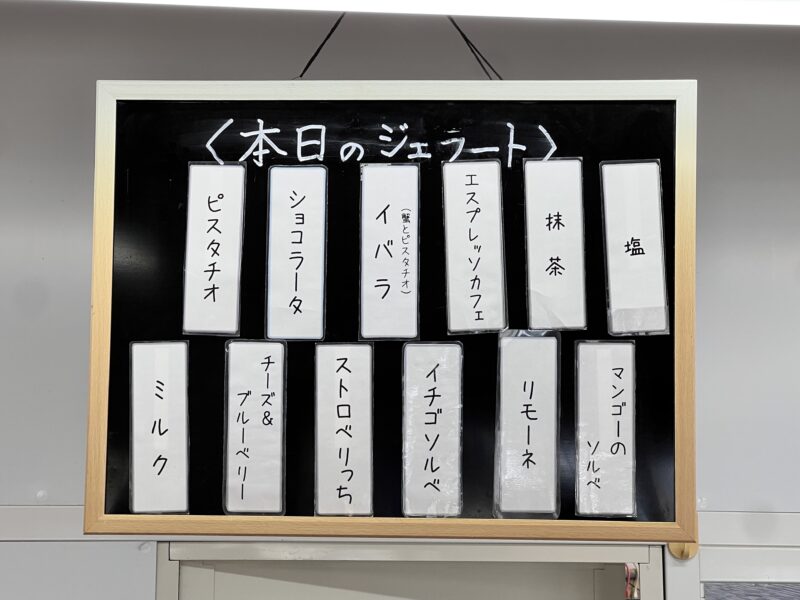 〈本日のジェラート〉
塩
抹茶
エスプレッソカフェ
イバラ
(蟹とピスタチオ)
ショコラータ
ピスタチオ
マンゴーの
ソルベ
リモーネ
イチゴソルベ
ストロベリっち
チーズ&
ブルーベリー
ミルク